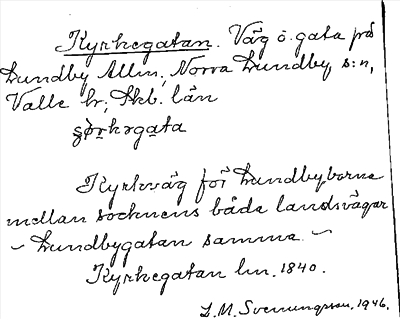 Kyrkegatan. Väg o. gata på
Lundby Allm., Norra Lundby s:n,
Valle hr, Skb. län
Kyrkväg för Lundbyborna
mellan socknens båda landsvägar
– Lundbygatan samma. –
Kyrkegatan lm. 1840.
L. M. Svenungsson, 1946.